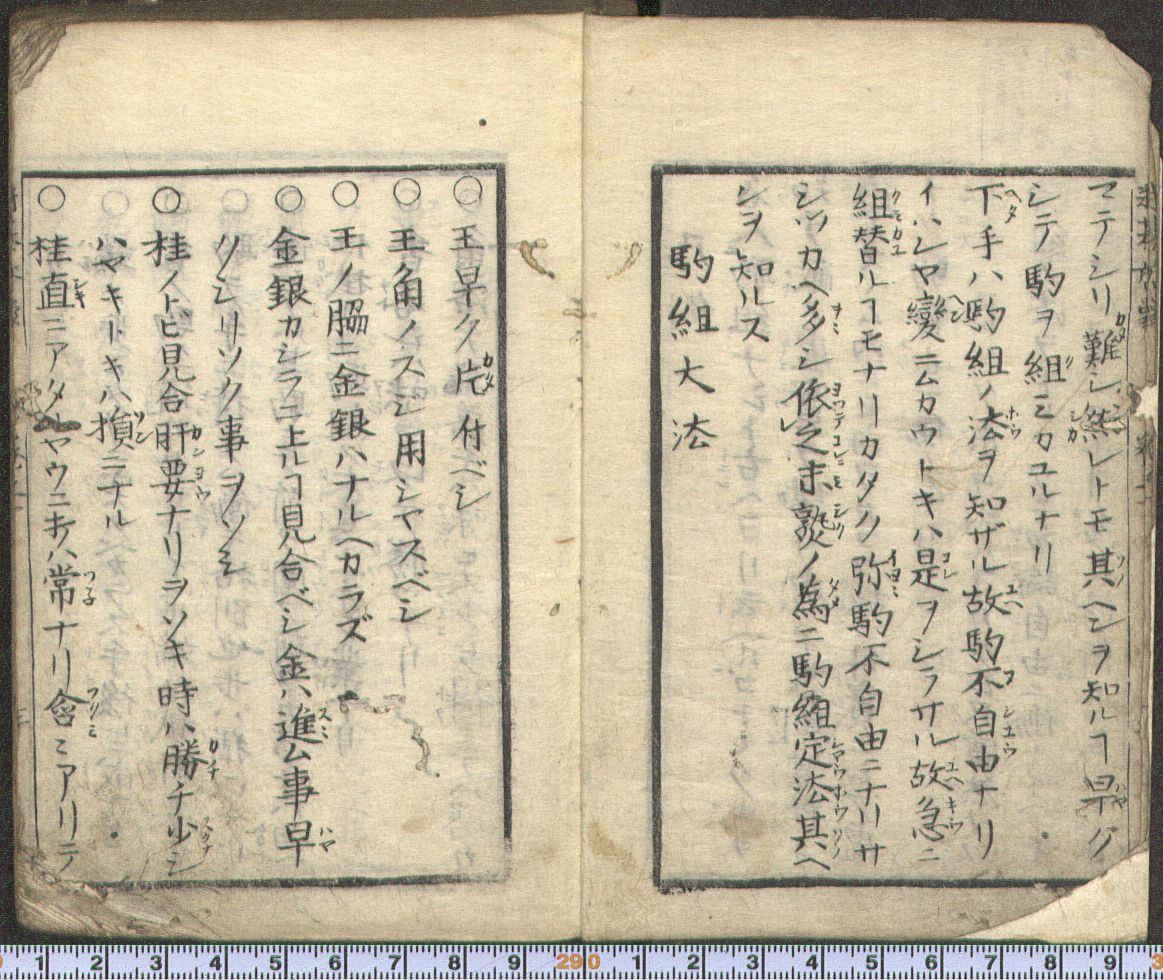 マテシリ難シ然レトモ其ヘンヲ知ルヿ早グ
シテ駒ヲ組ミカユルナリ
下手ハ駒組ノ法ヲ知ザル故駒不自由ナリ
イハンヤ變ニムカウトキハ是ヲシラサル故急ニ
組替ルヿモナリカタク弥駒不自由ニナリサ
シツカヘ多シ依之未熟ノ為ニ駒組定法其ヘ
ンヲ知ルス
駒組大法
○王早ク片付ベシ
○王角ノスジ用シヤスベシ
○王ノ脇ニ金銀ハナルヘカラズ
○金銀カシラニ上ルヿ見合ベシ金ハ進ム事早
クシリソク事ヲソシ
○桂ノトビ見合肝要ナリヲソキ時ハ勝チ少シ
ハヤキトキハ損ニナル
○桂直ニアタルヤウニ打ハ常ナリ會ミアリテ